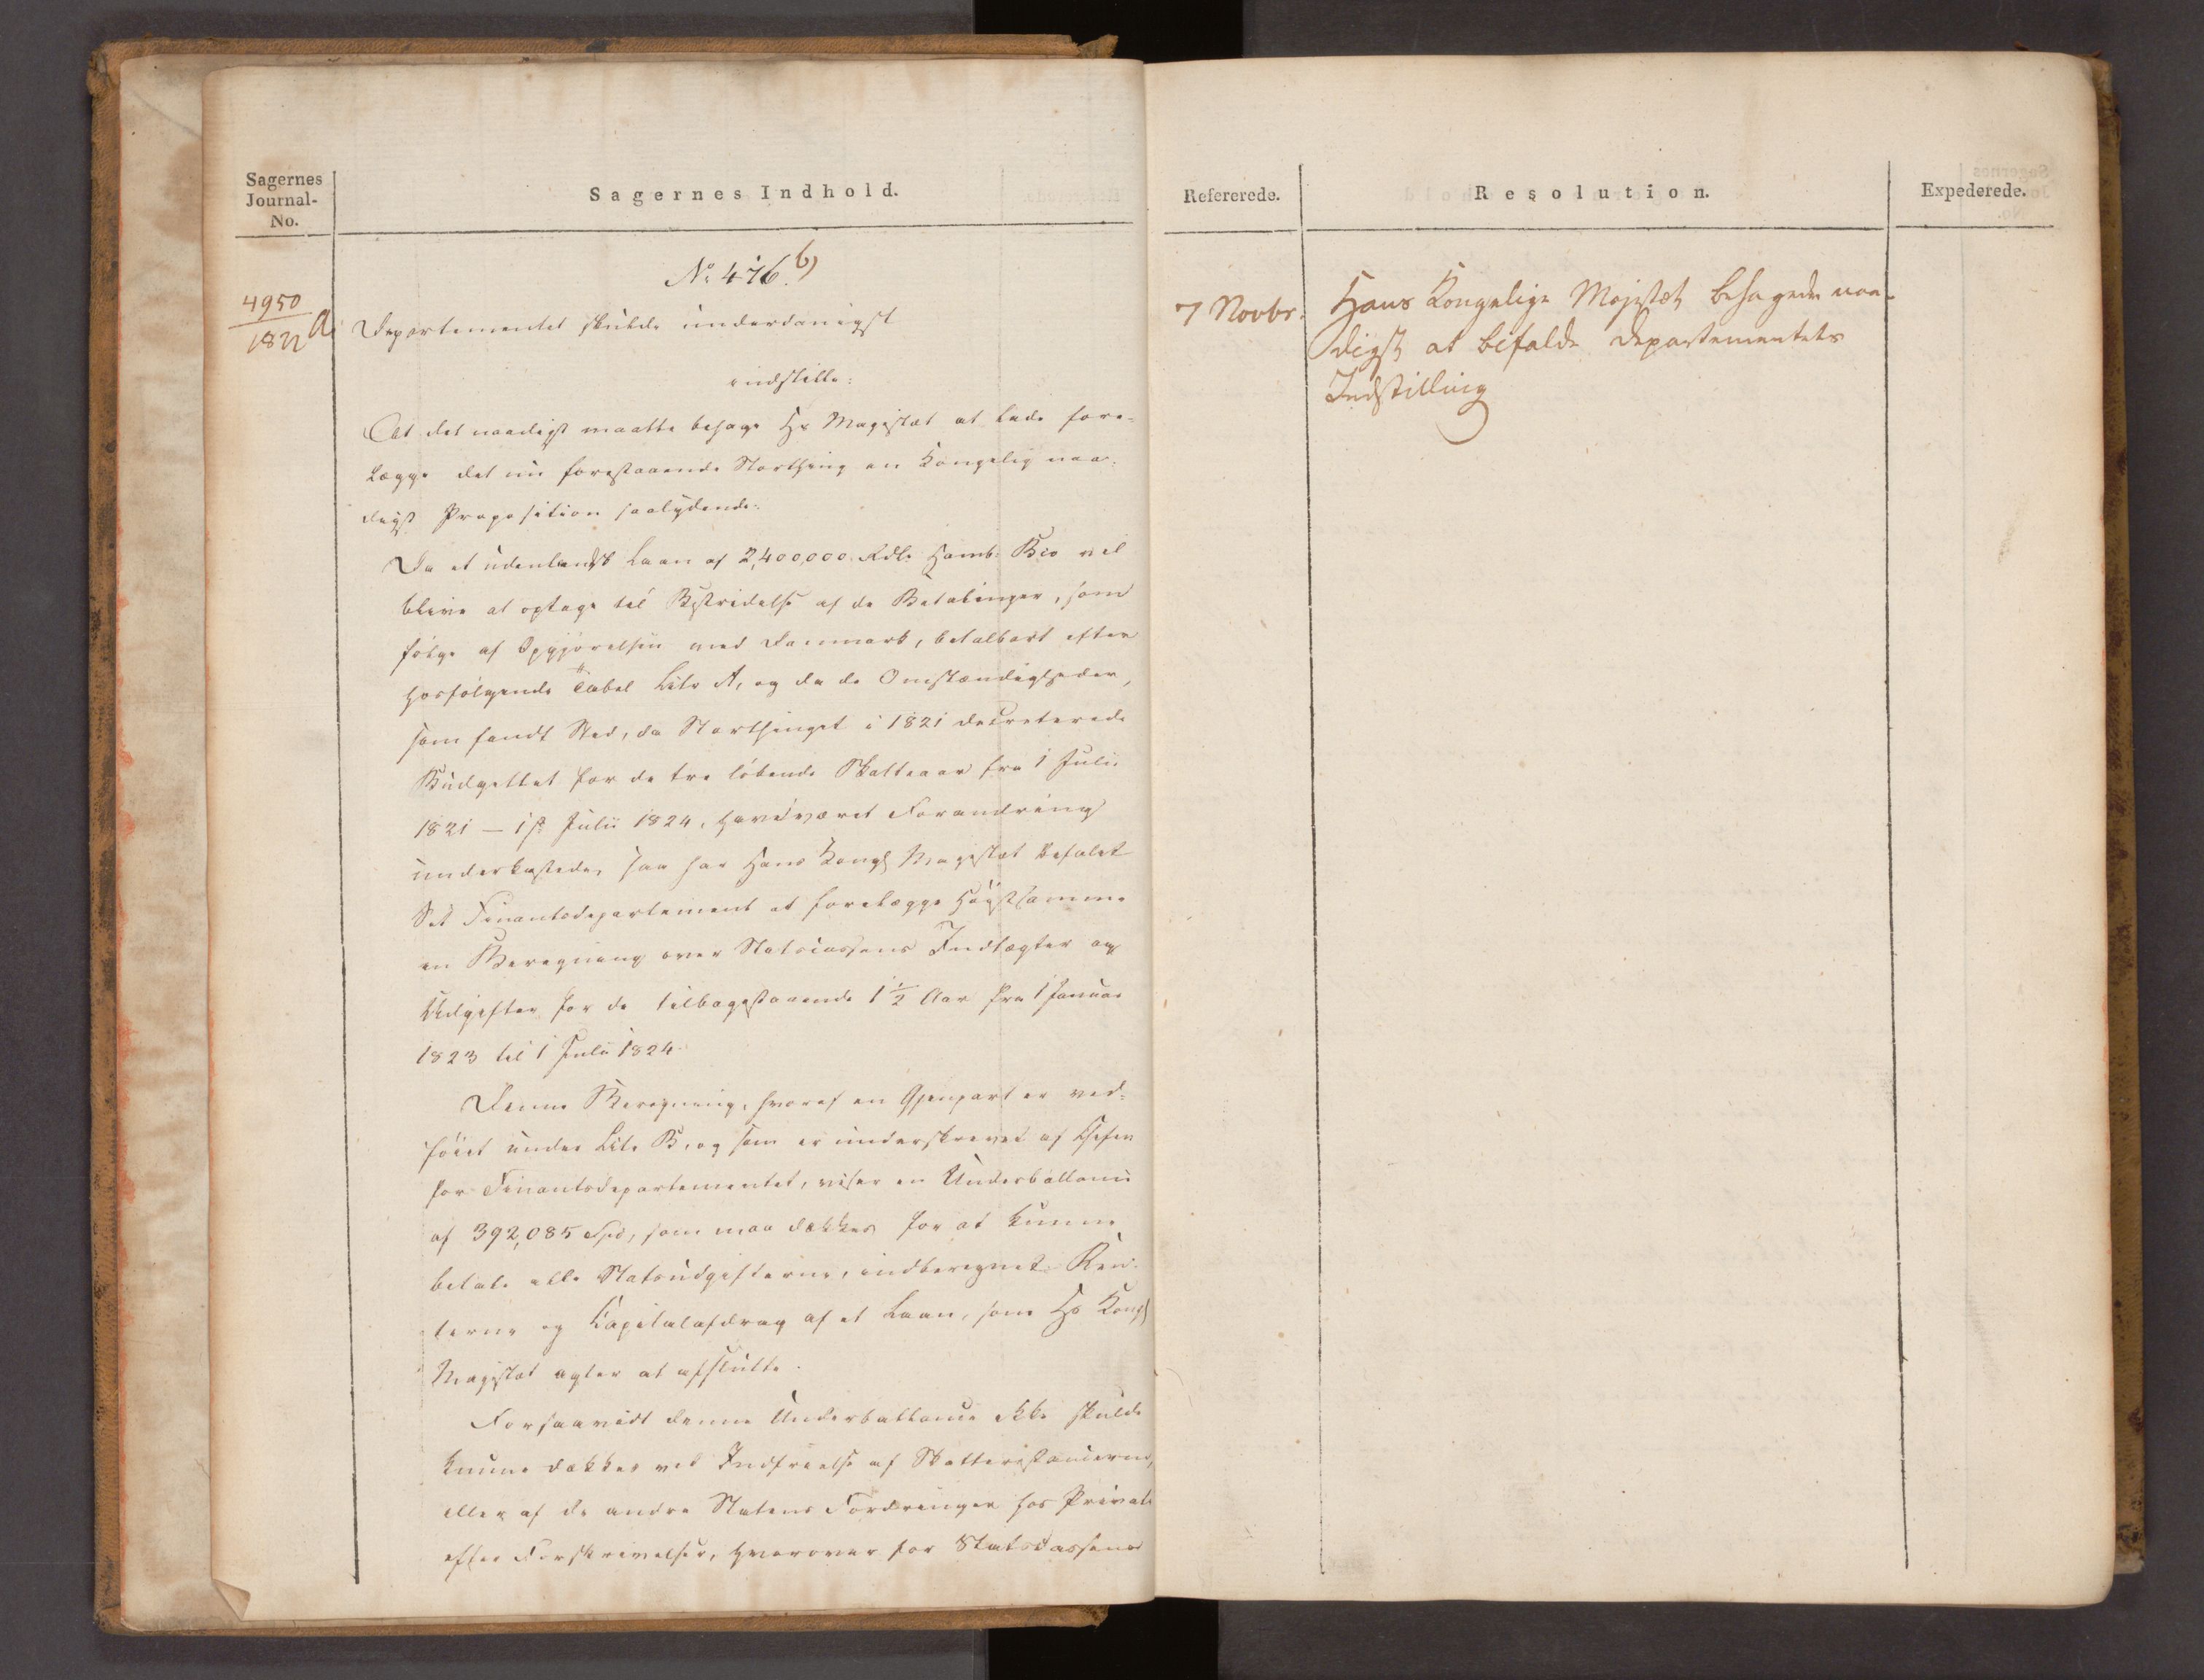 Sagernes
Journal-
No.
Sagernes Indhold.
No 476. b)
4950
1822
a
Departementet skulde underdanigst
indstille:
At det naadigst maatte behage Hs Majestæt at lade fore-
lægge det nu forestaaende Storthing en Kongelig naa-
digst Proposition saalydende:
Da et udenlandsk Laan af 2,400,000 Rdlr Hamb: Bco vil
blive at optage til Bestridelse af de Betalinger, som
følge af Opgjørelsen med Danmark, betalbart efter
hosfølgende Tabel Litr A, og da de Omstændigheder,
som fandt Sted, da Storthinget i 1821 decreterede
Budgettet for de tre løbende Skatteaar fra 1 Julii
1821 — 1ste Julii 1824, have været Forandring
underkastede, saa har Hans Kongl Majestæt befalet
Sit Finantsdepartement at forelægge Høistsamme
en Beregning over Statscassens Indtægter og
Udgifter for de tilbagestaaende 1 1/2 Aar fra 1 Januar
1823 til 1 Julii 1824.
Denne Beregning, hvoraf en Gjenpart er ved-
føiet under Litr B, og som er underskrevet af Chefen
for Finantsdepartementet, viser en Underballance
af 392,085 Spd, som maa dækkes for at kunne
betale alle Statsudgifterne, indberegnet Ren-
terne og Capitalafdrag af et Laan, som Hs Kongl
Majestæt agter at afslutte.
Forsaavidt denne Underballance ikke skulde
kunne dækkes ved Indfrielse af Skatterestancerne,
eller af de andre Statens Fordringer hos Private
efter Forskrivelser, hvorover for Statscassens
Refererede.
Resolution.
Expederede.
7 Novbr.
Hans Kongelige Majestæt behagede naa-
digst at bifalde Departementets
Indstilling